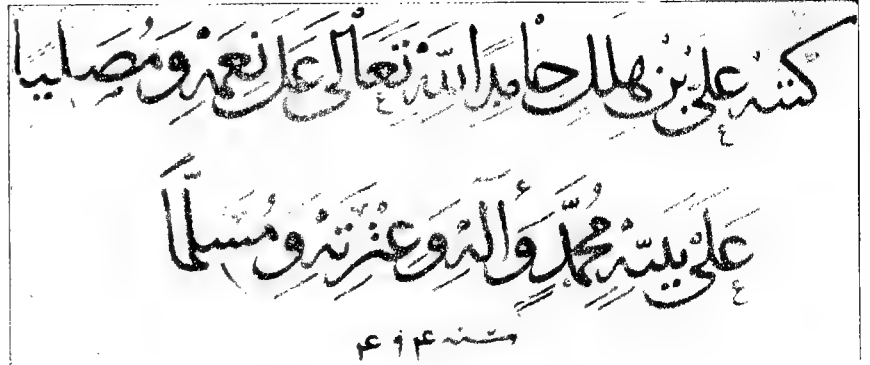 كَتَبَهُ عَلِيُّ بْنُ هِلٰلٍ حَامِدًا لِلّٰهِ تَعَالَى عَلَى نِعَمِهِ وَمُصَلِّيًا
عَلَى نَبِيِّهِ مُحَمَّدٍ وَآلِهِ وَعِتْرَتِهِ وَمُسَلِّمًا
سنه